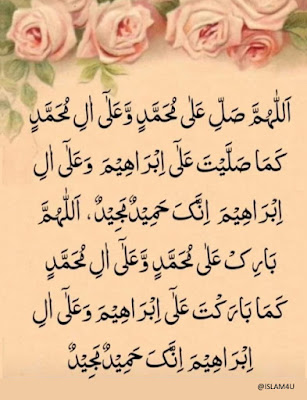 اَللّٰهُمَّ صَلِّ عَلٰى مُحَمَّدٍ وَّعَلٰٓى اٰلِ مُحَمَّدٍ
كَمَا صَلَّيْتَ عَلٰٓى اِبْرَاهِيْمَ وَعَلٰٓى اٰلِ
اِبْرَاهِيْمَ اِنَّكَ حَمِيْدٌ مَّجِيْدٌ، اَللّٰهُمَّ
بَارِكْ عَلٰى مُحَمَّدٍ وَّعَلٰٓى اٰلِ مُحَمَّدٍ
كَمَا بَارَكْتَ عَلٰٓى اِبْرَاهِيْمَ وَعَلٰٓى اٰلِ
اِبْرَاهِيْمَ اِنَّكَ حَمِيْدٌ مَّجِيْدٌ
@ISLAM4U